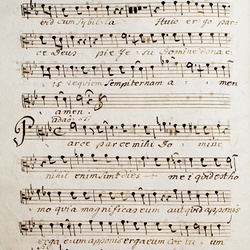 vid cum sybilla Huic ergo par
ce Deus pie Je su Domine dona e
is requiem sempiternam a men
amen.
Parce parce mihi Do mine
nihil enim, dies me i quid est ho
mo quia magnificas eum aut quid apponis
erga eum apponis erga eum cor tu um